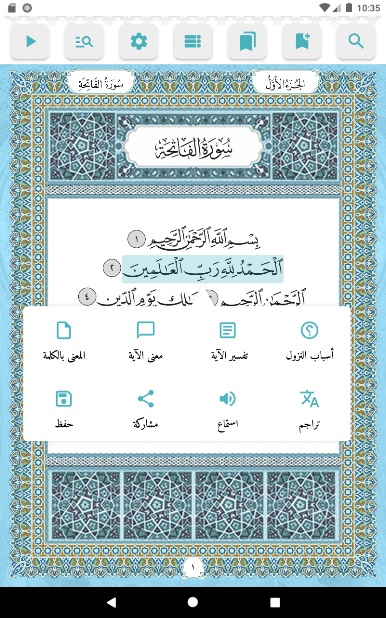 10:35
الجزء الأول
سورة الفاتحة
سورة الفاتحة
بسم الله الرحمن الرحيم ١
الحمد لله رب العالمين ٢
الرحمن الرحيم مالك يوم الدين ٤
أسباب النزول
تفسير الآية
معنى الآية
المعنى بالكلمة
تراجم
استماع
مشاركة
حفظ
١